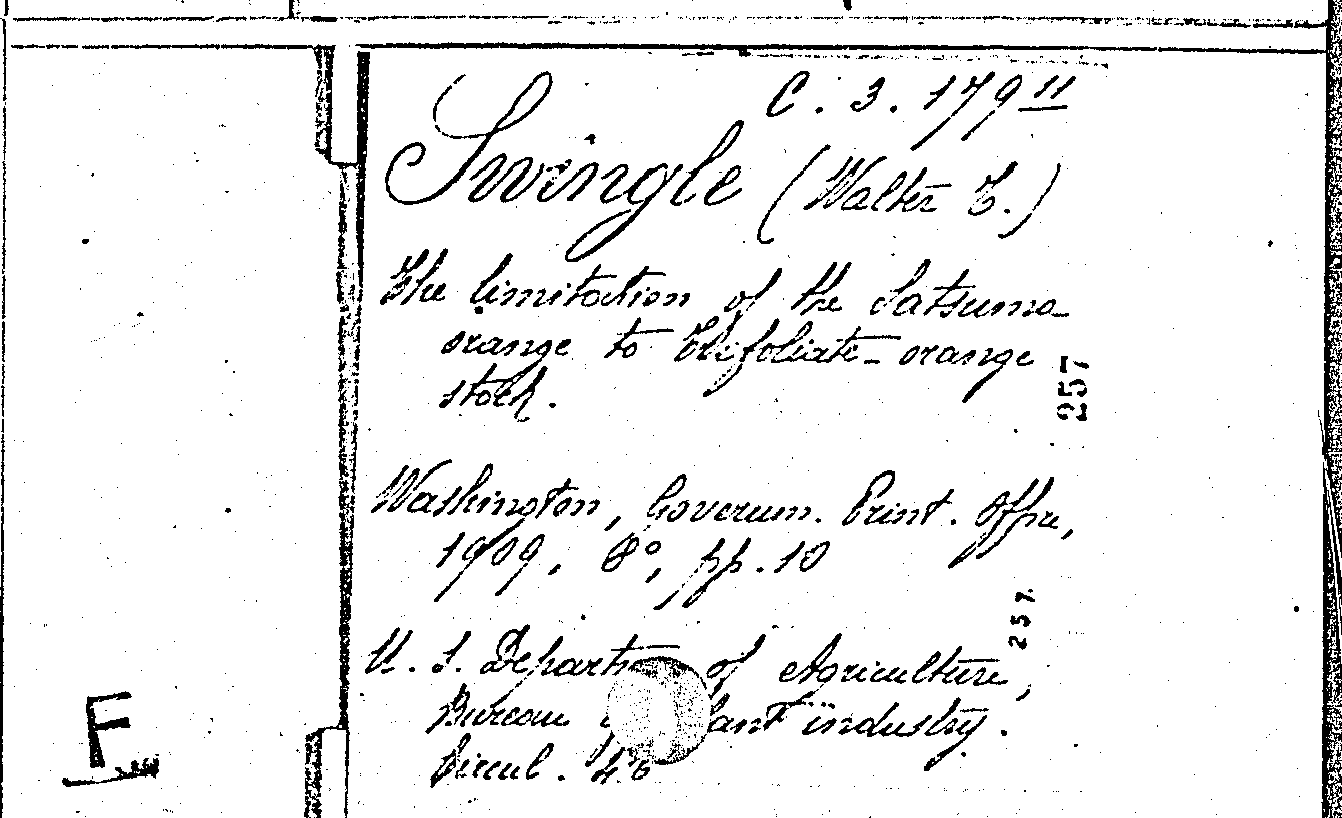 C. 3. 179 11
Swingle (Walter T.)
The limitation of the Satsuma
orange to Trifoliate-orange
stock.
257
Washington, Governm. Print. Offic,
1909, 8°, pp. 10
257
U. S. Departm of Agriculture,
Bureau of lant industry.
Circul. 46
F